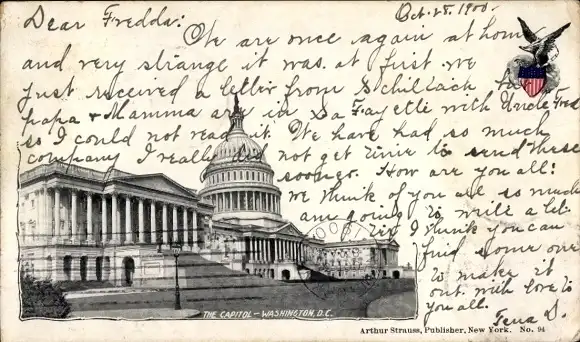 Oct. 28, 1900.
Dear Fredda:
We are once again at home
and very strange it was at first. We
just received a letter from Schillbach
papa & Mamma are in La Fayette with Uncle Fred
so I could not read it. We have had so much
company I really did not get time to send these
sooner. How are you all?
We think of you all so much
am going to write a let
ter I think you can
find some one
to make it
out. with love to
you all.
Tena S.
THE CAPITOL - WASHINGTON, D.C.
Arthur Strauss, Publisher, New York. No. 94